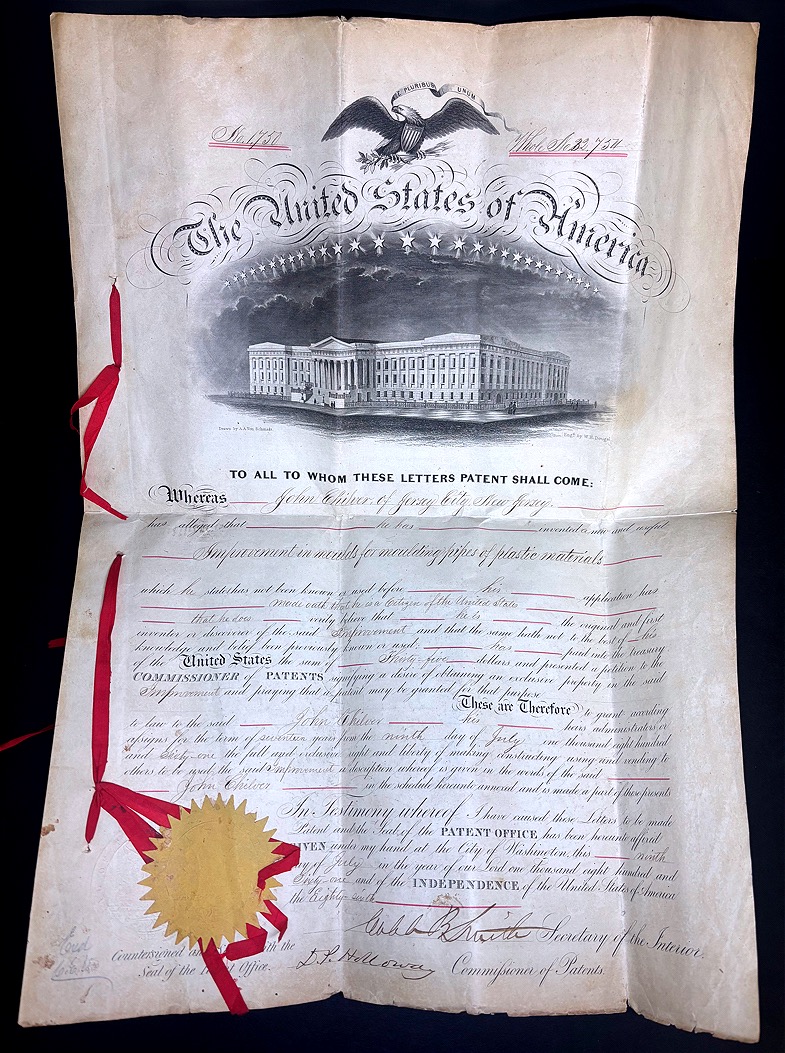 E PLURIBUS UNUM
No. 1750
Whole No. 32,754
The United States of America
Drawn by A.A. Von Schmidt
Engd by W.H. Dougal
TO ALL TO WHOM THESE LETTERS PATENT SHALL COME:
Whereas John Chilver of Jersey City, New Jersey.
has alleged that he has invented a new and useful
Improvement in moulds for moulding pipes of plastic materials
which he states has not been known or used before his application has
made oath that he is a Citizen of the United States
that he does verily believe that he is the original and first
inventor or discoverer of the said Improvement and that the same hath not to the best of his
knowledge and belief been previously known or used: has paid into the treasury
of the United States the sum of Thirty-five dollars and presented a petition to the
COMMISSIONER of PATENTS signifying a desire of obtaining an exclusive property in the said
Improvement and praying that a patent may be granted for that purpose
These are Therefore to grant according
to law to the said John Chilver his heirs administrators or
assigns for the term of seventeen years from the ninth day of July one thousand eight hundred
and Sixty-one the full and exclusive right and liberty of making constructing using and vending to
others to be used the said Improvement a description whereof is given in the words of the said
John Chilver in the schedule hereunto annexed and is made a part of these presents
In Testimony whereof I have caused these Letters to be made
Patent and the Seal of the PATENT OFFICE has been hereunto affixed
GIVEN under my hand at the City of Washington this ninth
day of July in the year of our Lord one thousand eight hundred and
Sixty-one and of the INDEPENDENCE of the United States of America
the Eighty-sixth
Caleb B Smith Secretary of the Interior.
Countersigned and with the
Seal of the Office. D.P. Holloway Commissioner of Patents.